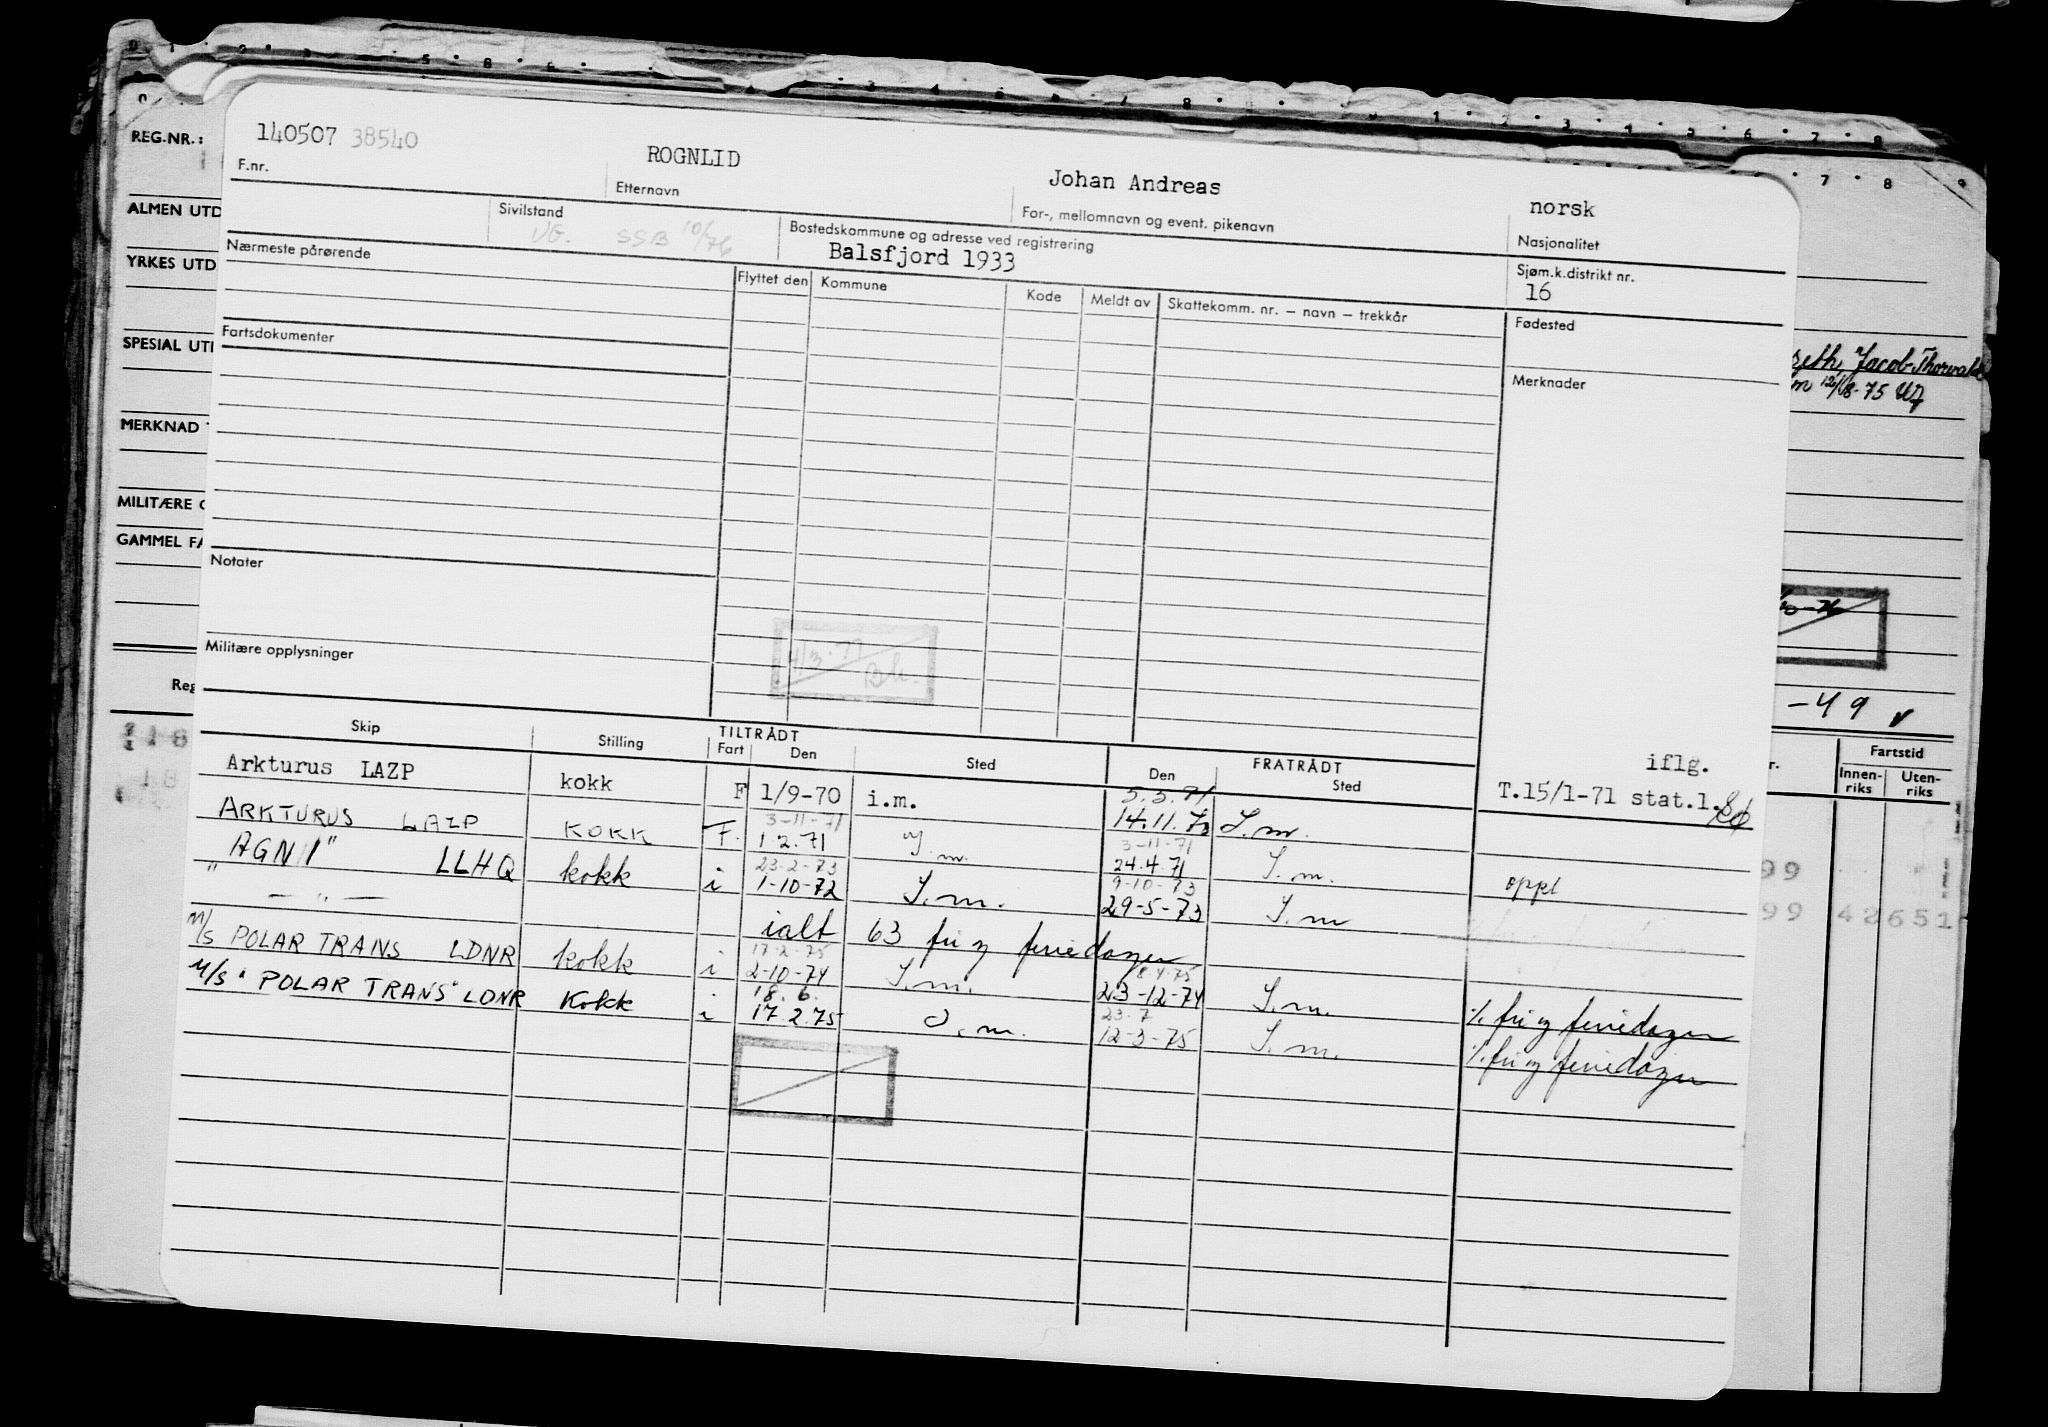 REG.NR.:
140507 38540
ROGNLID
Johan Andreas
norsk
F.nr.
Etternavn
For-, mellomnavn og event. pikenavn
Nasjonalitet
ALMEN UTD
Sivilstand
UG. SSB 10/76
Bostedskommune og adresse ved registrering
Balsfjord 1933
Sjøm.k.distrikt nr.
16
YRKES UTD
Nærmeste pårørende
Flyttet den
Kommune
Kode
Meldt av
Skattekomm. nr. – navn – trekkår
Fødested
SPESIAL UT
Fartsdokumenter
Merknader
Jacob Thorvald
12/8-75
MERKNAD
MILITÆRE
GAMMEL FA
Notater
Militære opplysninger
4/3-77
Reg
-49
Skip
Stilling
TILTRÅDT
Fart
Den
Sted
FRATRÅDT
Den
Sted
Fartstid
Innen-riks
Uten-riks
iflg.
Arkturus LAZP kokk F 1/9-70 i.m. 5.3.71 T.15/1-71 stat.l.
14.11.70 I.m.
3-11-71
ARKTURUS LAZP KOKK F. 1.2.71 I.m. 3-11-71
24.4.71 I.m.
23-2-73
"AGN I" LLHQ kokk i 1-10-72 I.m. 9-10-73
29-5-73 I.m oppl
" — " — ialt 63 fri og feriedager
99
99 42651
17-2-75
M/S POLAR TRANS LDNR kokk i 2-10-74 I.m. 8.4.75
23-12-74 I.m. % fri og feriedager
18.6.
M/S "POLAR TRANS" LDNR Kokk i 17.2.75 I.m. 23.7
12-3-75 I.m. % fri og feriedager